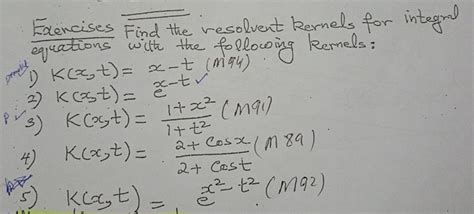 Exercises Find the resolvent kernels for integral
equations with the following kernels:
1) K(x,t) = x-t (M94)
2) K(x,t) = e^{x-t} ✓
P 3) K(x,t) = \frac{1+x^2}{1+t^2} (M91)
4) K(x,t) = \frac{2+cosx}{2+cost} (M89)
5) K(x,t) = e^{x^2-t^2} (M92)